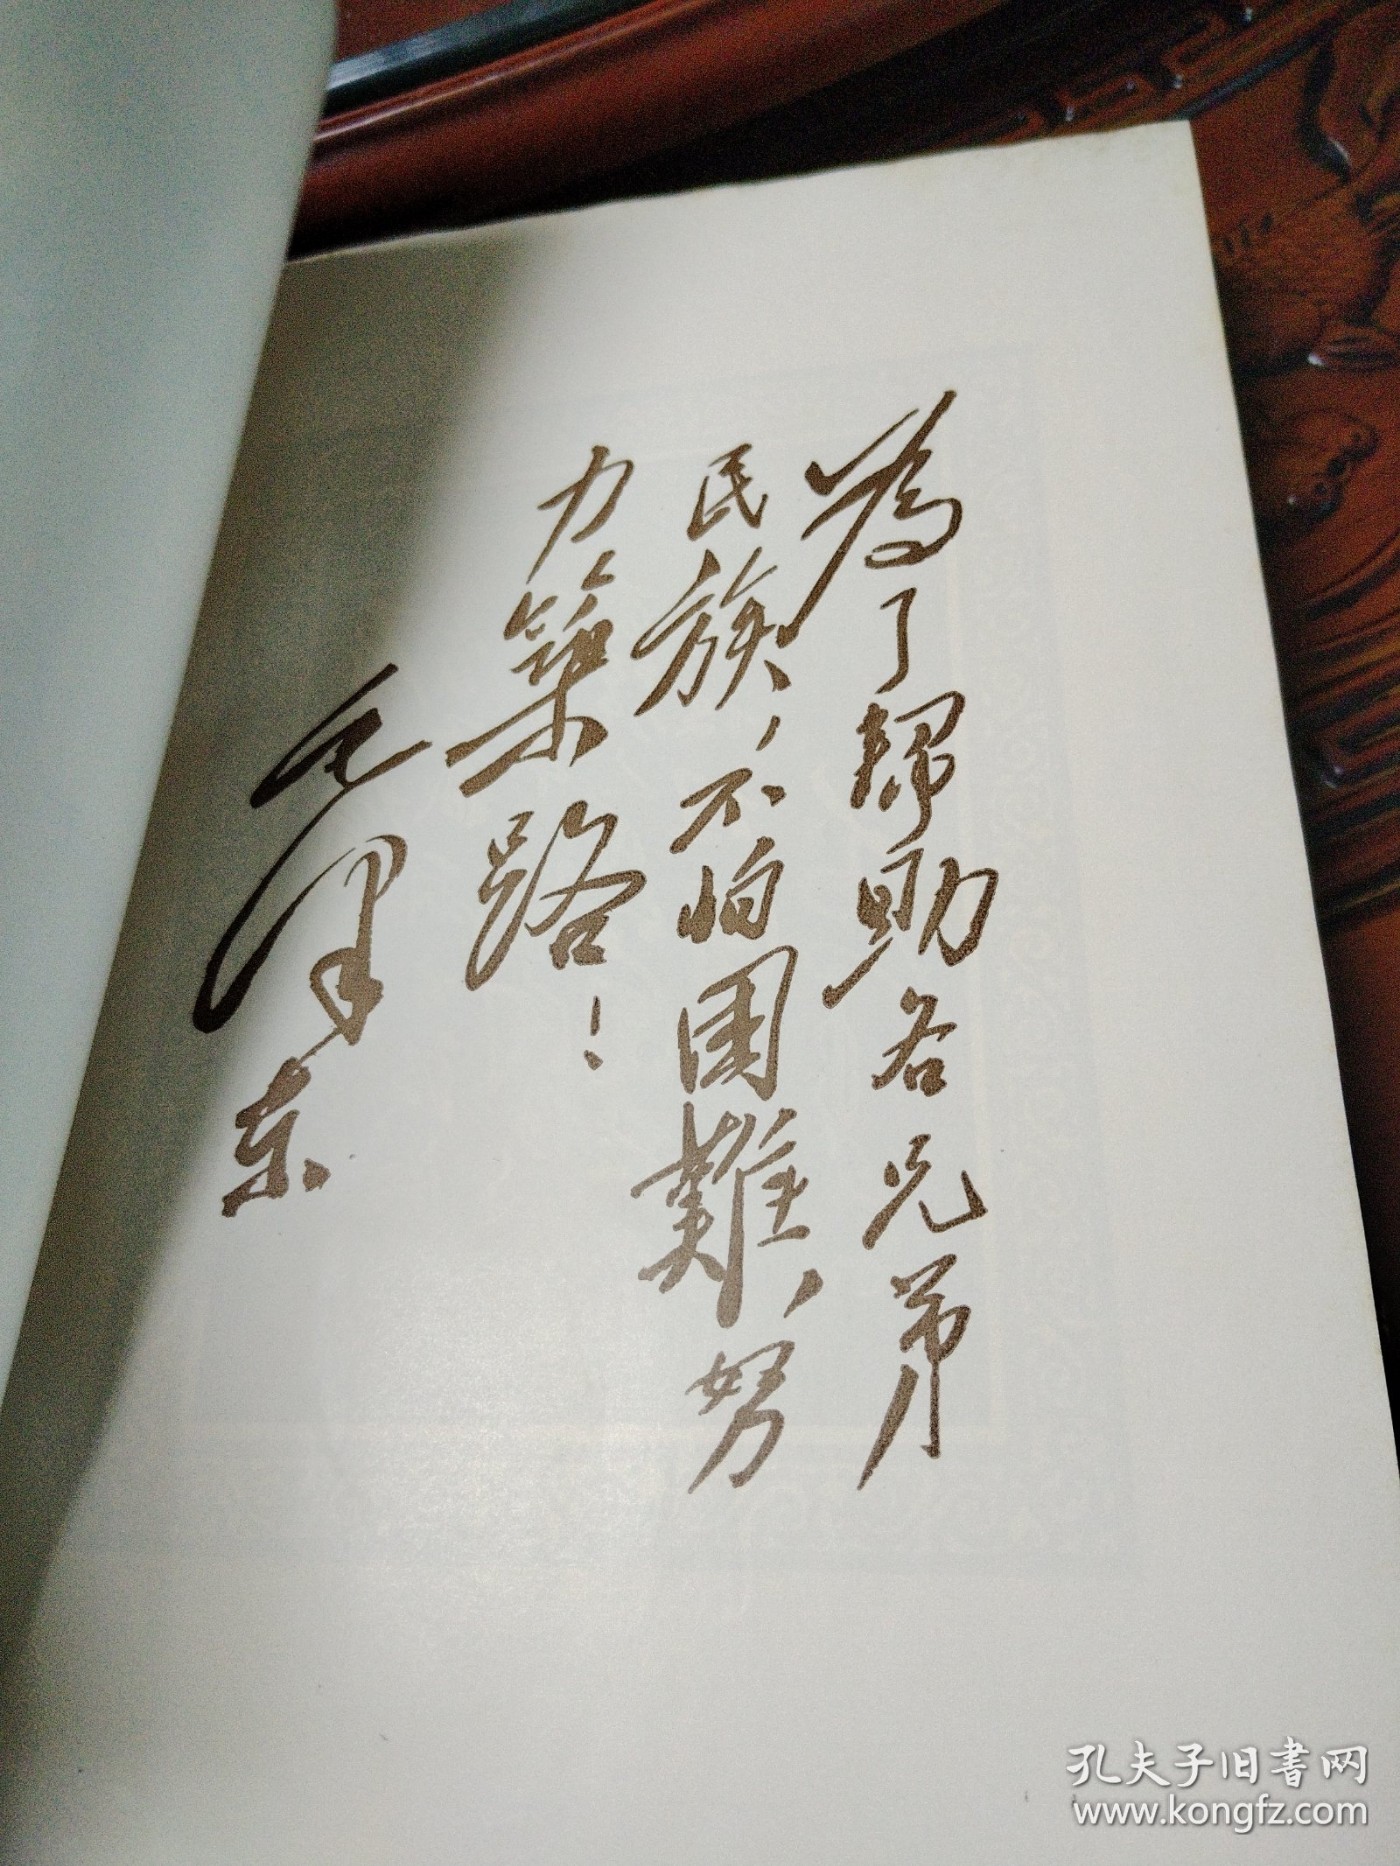 為了幫助各兄弟
民族，不怕困難，努
力築路！
毛澤東
孔夫子旧書网
www.kongfz.com